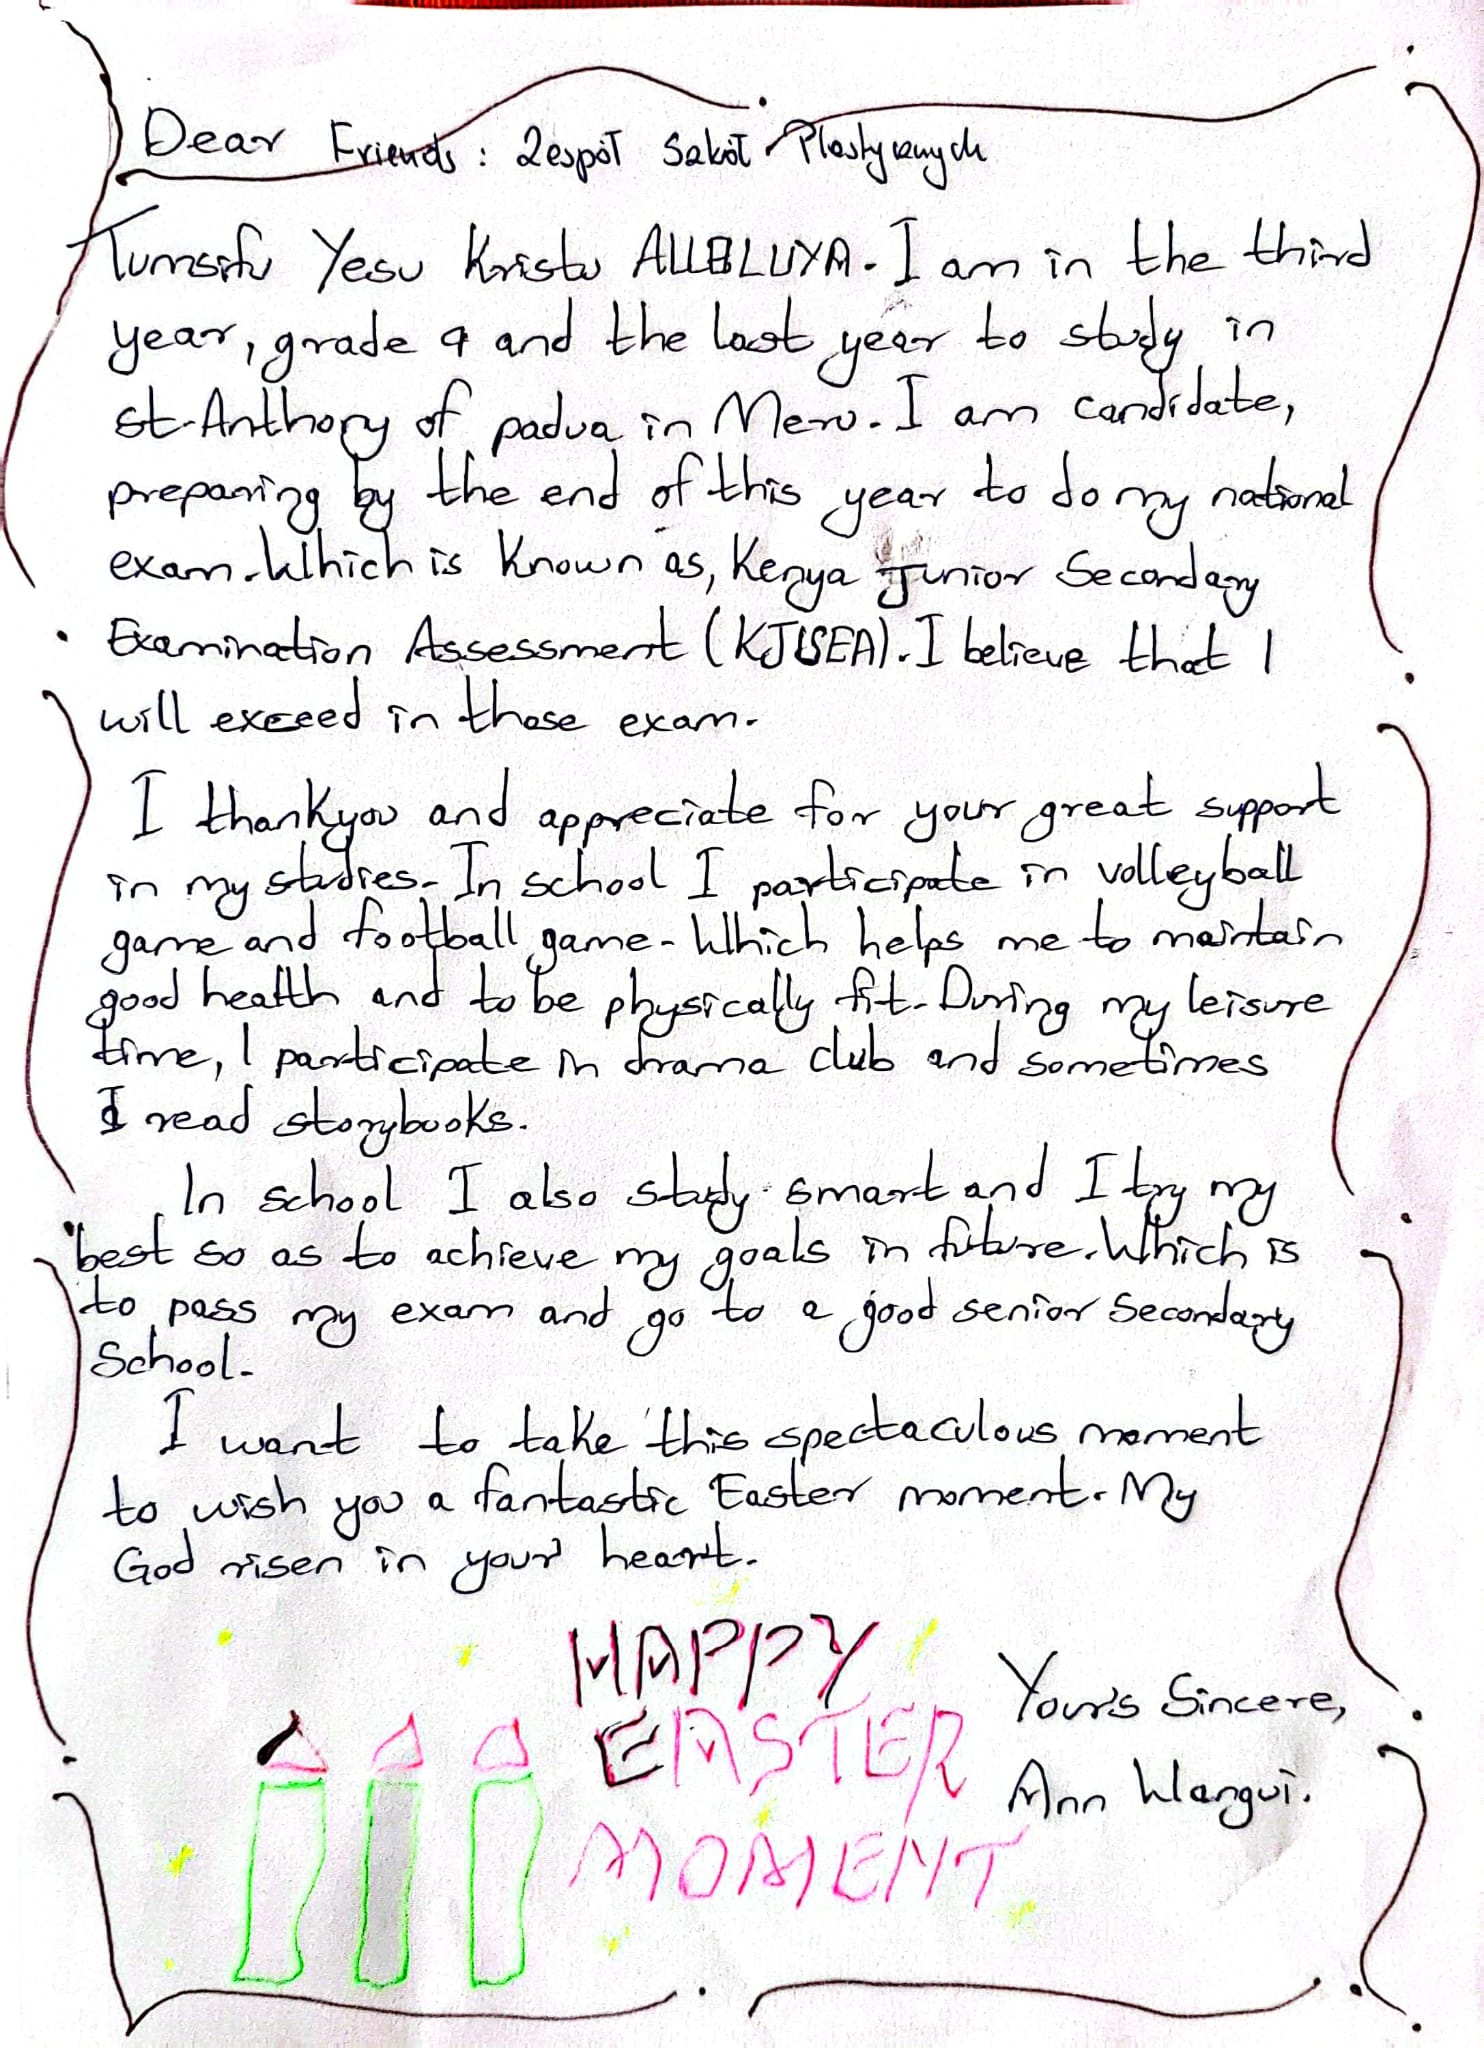 Dear Friends: Zespół Szkół Plastycznych
Tumsifu Yesu Kristu ALLELUYA. I am in the third
year, grade 9 and the last year to study in
St. Anthony of padua in Meru. I am candidate,
preparing by the end of this year to do my national
exam. Which is known as, Kenya Junior Secondary
Examination Assessment (KJSEA). I believe that I
will exceed in those exam.
I thankyou and appreciate for your great support
in my studies. In school I participate in volleyball
game and football game. Which helps me to maintain
good health and to be physically fit. During my leisure
time, I participate in drama club and sometimes
I read storybooks.
In school I also study smart and I try my
best so as to achieve my goals in future. Which is
to pass my exam and go to a good senior Secondary
School.
I want to take this spectaculous moment
to wish you a fantastic Easter moment. My
God risen in your heart.
HAPPY
EASTER
MOMENT
Your's Sincere,
Ann Wangui.